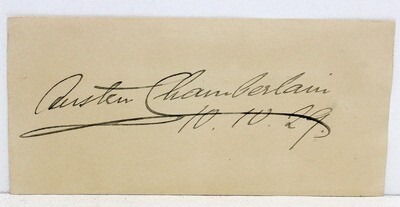 Austen Chamberlain
10.10.29.